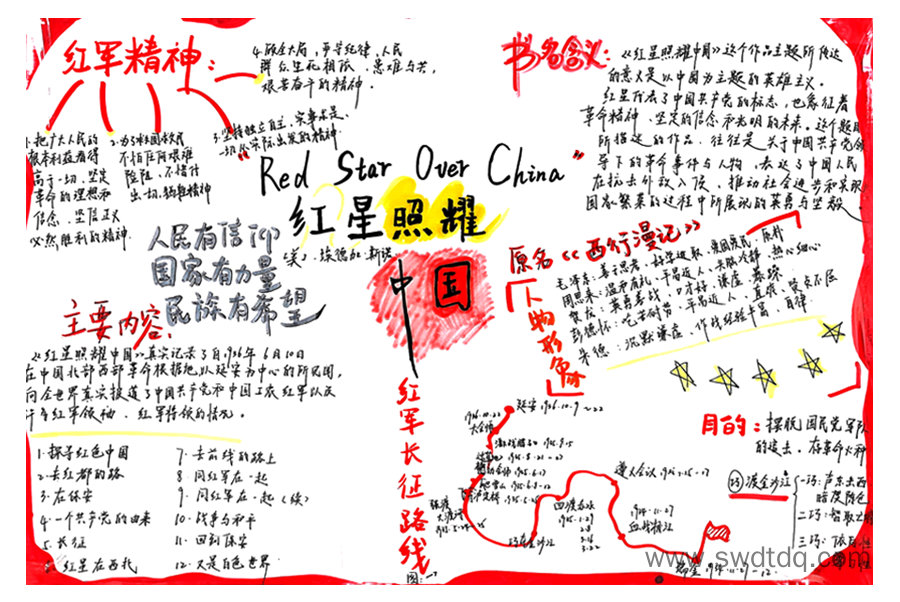 红军精神:
4.顾全大局、严守纪律、人民
群众生死相依、患难与共,
艰苦奋斗的精神.
1.把广大人民的
根本利益看得
高于一切、坚定
革命的理想和
信念、坚信正义
必然胜利的精神.
2.为了救国救民
不怕任何艰难
险阻、不惜付
出一切牺牲精神
3.坚持独立自主、实事求是、
一切从实际出发的精神
书名含义:
《红星照耀中国》这个作品主题所传达
的意义是以中国为主题的英雄主义.
红星代表了中国共产党的标志,也象征着
革命精神、坚定的信念和光明的未来.这个题目
所描述的作品,往往是关于中国共产党领
导下的革命事件与人物,表达了中国人民
在抗击外敌入侵、推动社会进步和实现
国家繁荣的过程中所展现的英勇与坚毅
"Red Star Over China"
红星照耀
中国
(美).埃德加·斯诺
人民有信仰
国家有力量
民族有希望
原名《西行漫记》
人物形象
毛泽东:善于思考、好学进取、爱国爱民、质朴
周恩来:温和有礼、平易近人、热心细心
贺龙:英勇善战、口才好、谦虚
彭德怀:吃苦耐劳、平易近人、直爽
朱德:沉默谦虚、作战经验丰富、自律.
主要内容:
《红星照耀中国》真实记录了自1936年6月10
在中国北部西部革命根据地以延安为中心的所见闻,
向全世界真实报道了中国共产党和中国工农红军以及
许多红军领袖、红军将领的情况。
1.探寻红色中国
2.去红都的路
3.在保安
4.一个共产党的由来
5.长征
红星在西北
7.去前线的路上
8.同红军在一起
9.同红军在一起(续)
10.战争与和平
11.回到保安
12.又是白色世界
红军长征路线
图:→
延安
大会师
四渡赤水
巧渡金沙江
遵义会议
血战湘江
瑞金
目的:摆脱国民党军队
的追击、存革命火种
巧渡金沙江
一巧:声东击西
暗度陈仓
二巧:智取
三巧:
www.swdtdq.com